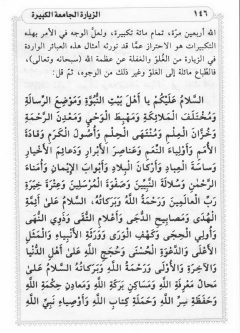 ١٤٦
الزيارة الجامعة الكبيرة
الله أربعين مرّة، تمام مائة تكبيرة، ولعلّ الوجه في الأمر بهذه
التكبيرات هو الاحتراز عمّا قد تورثه أمثال هذه العبائر الواردة
في الزيارة من الغُلوّ والغفلة عن عظمة الله (سبحانه وتعالى)،
فالطّباع مائلة إلى الغلوّ وغير ذلك من الوجوه، ثمّ قل:
السَّلامُ عَلَيْكُمْ يا أَهْلَ بَيْتِ النُّبُوَّةِ وَمَوْضِعَ الرِّسالَةِ
وَمُخْتَلَفَ الْمَلائِكَةِ وَمَهْبِطَ الْوَحْيِ وَمَعْدِنَ الرَّحْمَةِ
وَخُزّانَ الْعِلْمِ وَمُنْتَهَى الْحِلْمِ وَأُصُولَ الْكَرَمِ وَقادَةَ
الأُمَمِ وَأَوْلِياءَ النِّعَمِ وَعَناصِرَ الأَبْرارِ وَدَعائِمَ الأَخْيارِ
وَساسَةَ الْعِبادِ وَأَرْكانَ الْبِلادِ وَأَبْوابَ الإِيمانِ وَأُمَناءَ
الرَّحْمٰنِ وَسُلالَةَ النَّبِيِّينَ وَصَفْوَةَ الْمُرْسَلِينَ وَعِتْرَةَ خِيَرَةِ
رَبِّ الْعالَمِينَ وَرَحْمَةُ اللهِ وَبَرَكاتُهُ، السَّلامُ عَلىٰ أَئِمَّةِ
الْهُدىٰ وَمَصابِيحِ الدُّجىٰ وَأَعْلامِ التُّقىٰ وَذَوِي النُّهىٰ
وَأُولِي الْحِجىٰ وَكَهْفِ الْوَرىٰ وَوَرَثَةِ الأَنْبِياءِ وَالْمَثَلِ
الأَعْلىٰ وَالدَّعْوَةِ الْحُسْنىٰ وَحُجَجِ اللهِ عَلىٰ أَهْلِ الدُّنْيا
وَالآخِرَةِ وَالأُولىٰ وَرَحْمَةُ اللهِ وَبَرَكاتُهُ السَّلامُ عَلىٰ
مَحالِّ مَعْرِفَةِ اللهِ وَمَساكِنِ بَرَكَةِ اللهِ وَمَعادِنِ حِكْمَةِ اللهِ
وَحَفَظَةِ سِرِّ اللهِ وَحَمَلَةِ كِتابِ اللهِ وَأَوْصِياءِ نَبِيِّ اللهِ